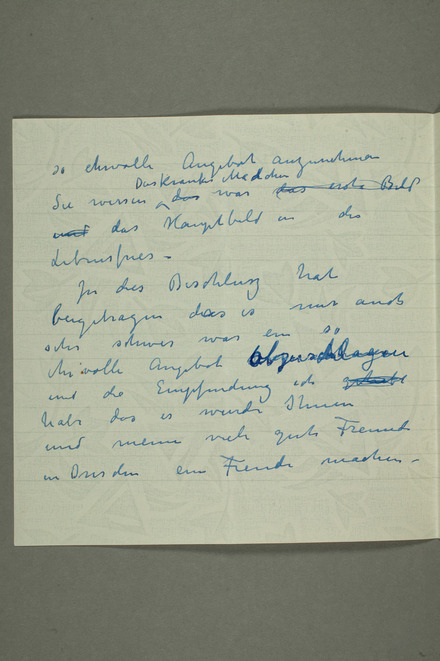 so ehrvolle Angebot anzunehmen
Das Kranke Mädchen
Sie wissen das war das erste Bild
und das Hauptbild in die
Lebensfries –
Zu das Beschlusz hat
beigetragen dass es mir auch
sehr schwer war ein so
ehrvolle Angebot abzuschlagen
und die Empfindung ich gehabt
habe das es wurde Ihnen
und meine viele gute Freunde
in Dresden ein Freude machen –